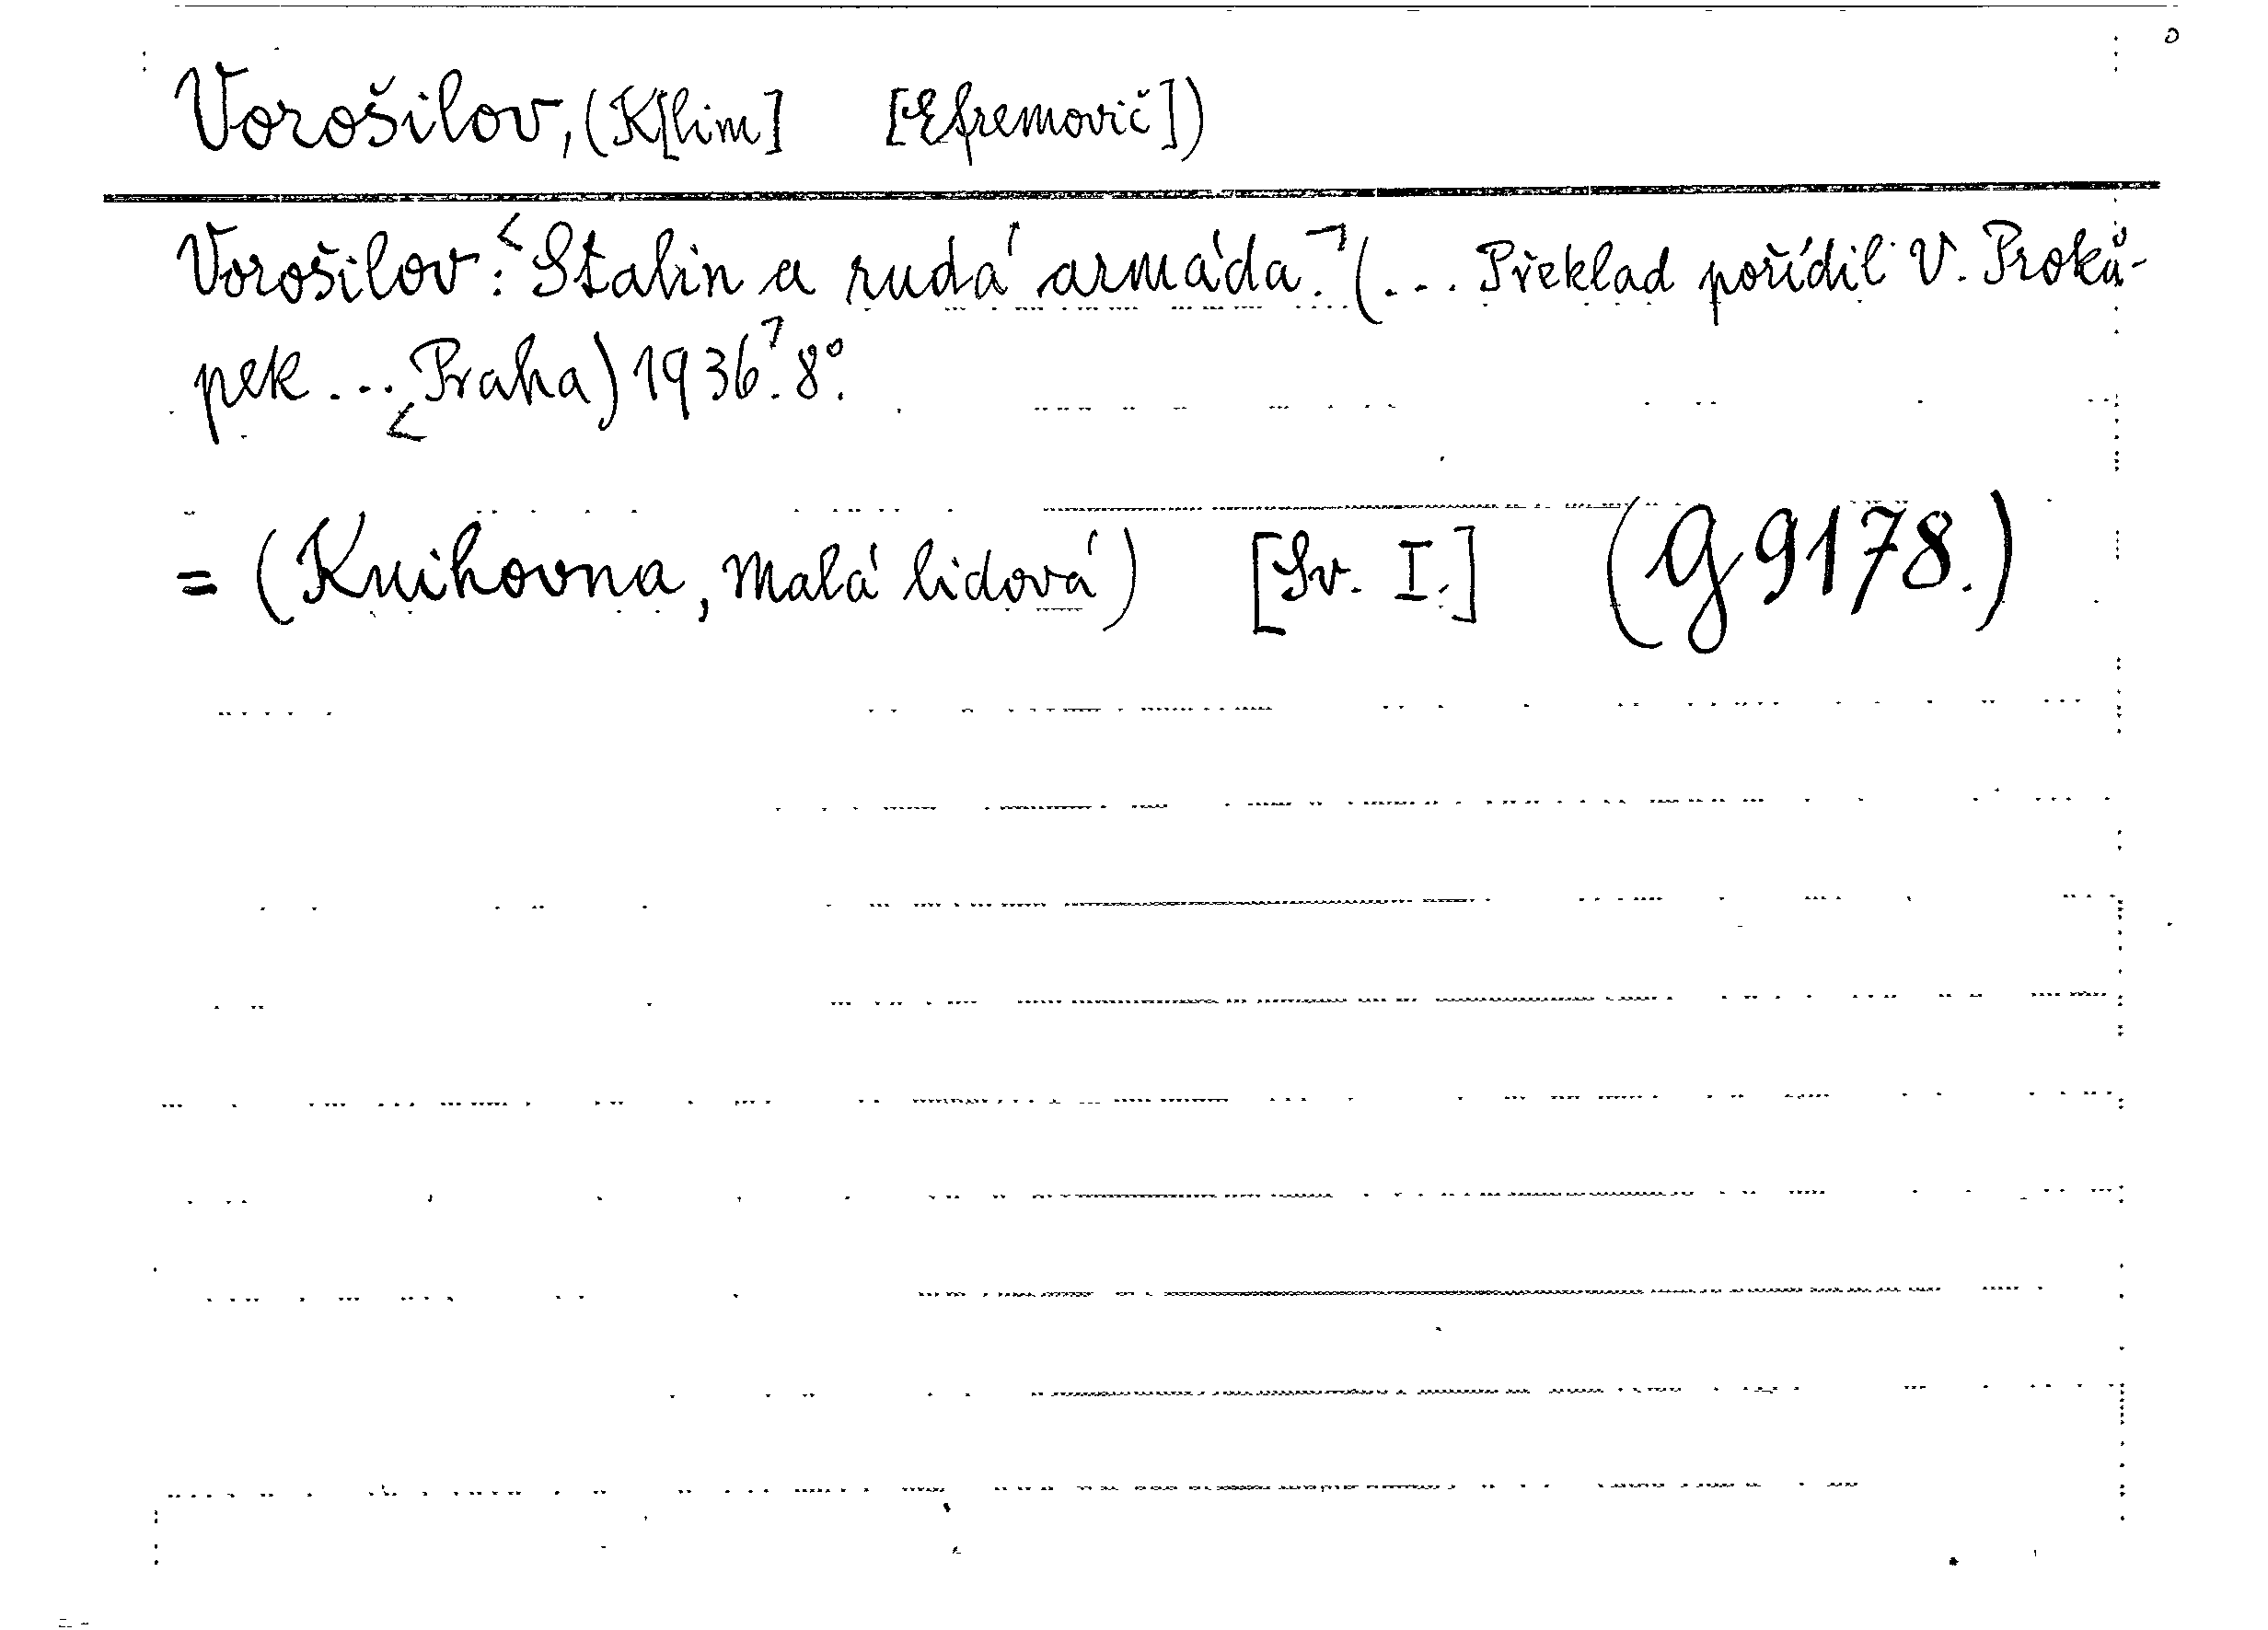 Vorošilov, (K[lim] [Efremovič])
Vorošilov: Stalin a rudá armáda. (... Překlad pořídil V. Proků-
pek ... Praha) 1936. 8°.
= (Knihovna, Malá lidová) [Sv. I.] (G 9178.)